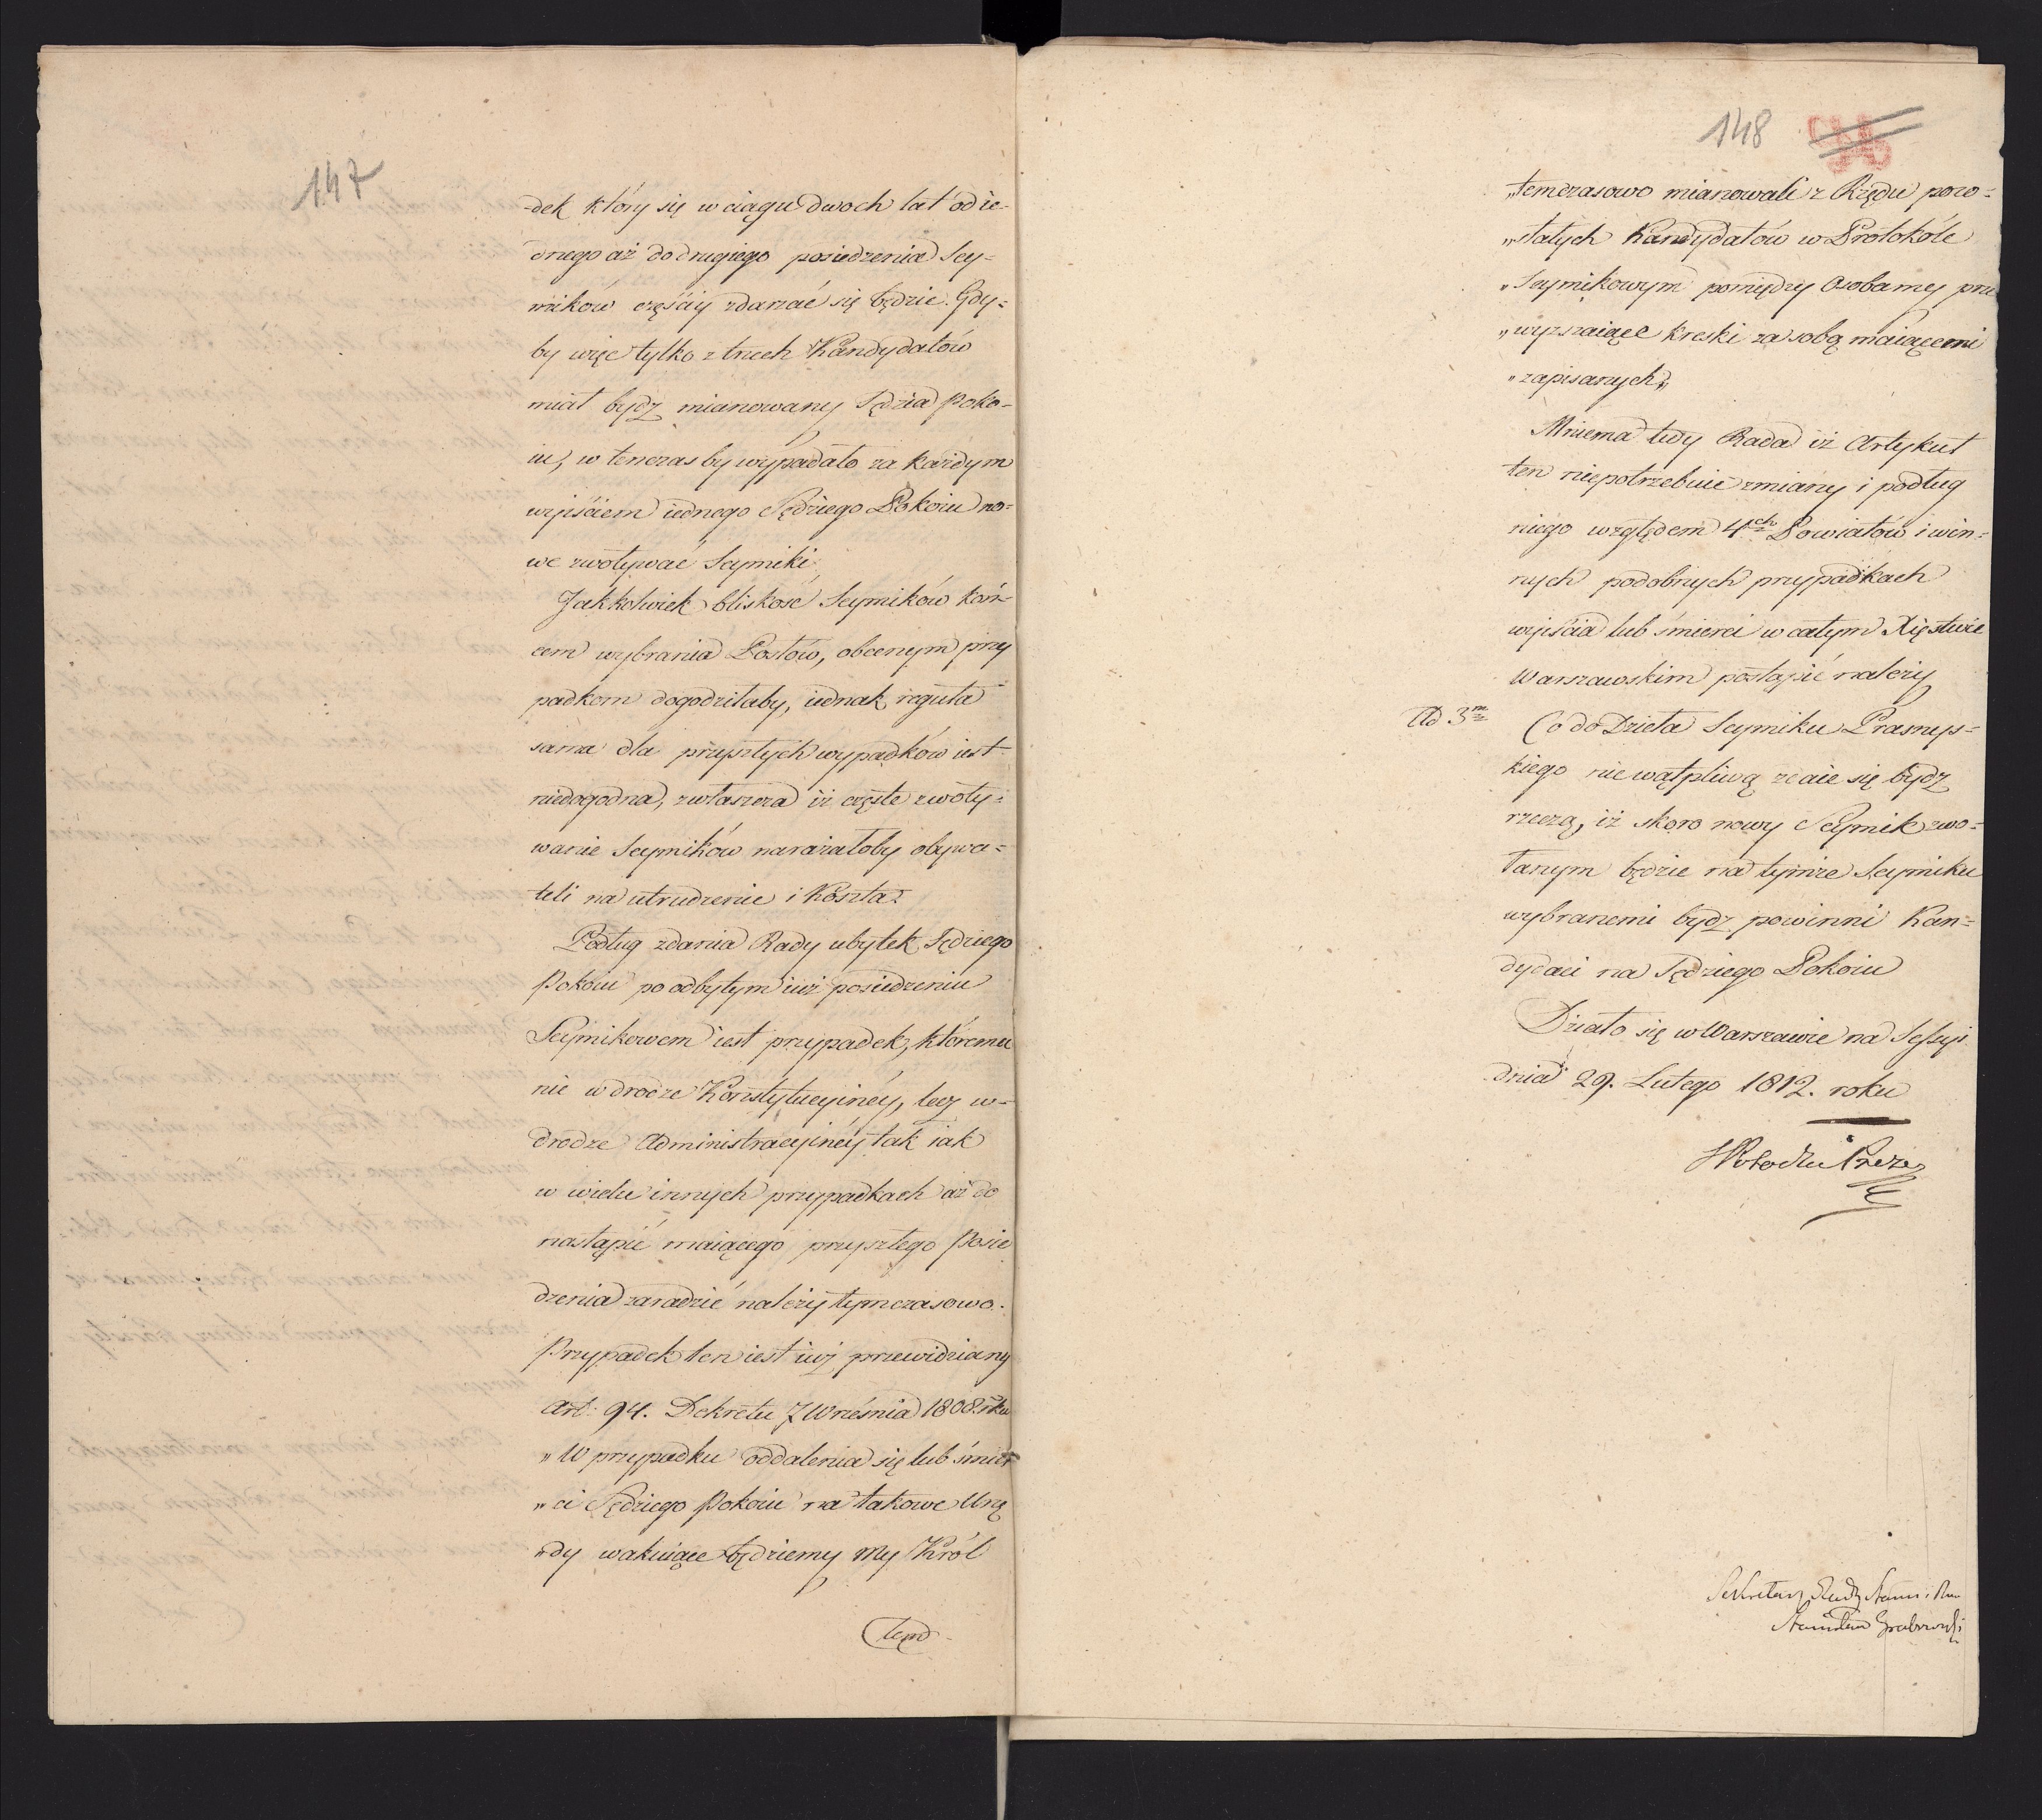 147
-dek który się w ciągu dwoch lat od ie-
dnego aż do drugiego posiedzenia Sey-
mików częściéy zdarzać się będzie. Gdy-
by więc tylko z trzech Kandydatów
miał bydź mianowany Sędzia Poko-
iu, w tenczas by wypadało za każdym
wyiściem iednego Sędziego Pokoiu no-
we zwoływać Seymiki
Jakkolwiek bliskość Seymików koń-
cem wybrania Posłów, obecnym przy
padkom dogodziłaby, iednak reguła
sama dla przyszłych wypadków iest
niedogodna, zwłaszcza iż częste zwoły-
wanie Seymików narażałoby obywa-
teli na utrudzenie i Koszta.
Podług zdania Rady ubytek Sędziego
Pokoiu po odbytym iuż posiedzeniu
Seymikowem iest przypadek, któremu
nie w drodze Konstytucyinéy, lecz w-
drodze Administracyinéy tak iak
w wielu innych przypadkach aż do
nastąpić maiącego przyszłego Posie
dzenia zaradzić należy tymczasowo.
Przypadek ten iest iuż przewidziany
Art: 94. Dekretu 7 Września 1808. rku
„W przypadku oddalenia się lub śmier
„ci Sędziego Pokoiu na takowe Urzę
„dy wakuiące będziemy My Król
tem
148
„temczasowo mianowali z Rzędu pozo-
„stałych Kandydatów w Protokóle
„Seymikowym pomiędzy Osobamy prze
„wyższaiące kreski za sobą maiącemi
„zapisanych„
Mniema tedy Rada iż Artykuł
ten niepotrzebuie zmiany i podług
niego względem 4ch Powiatów i win-
nych podobnych przypadkach
wyiścia lub śmierci w całym Xięstwie
Warszawskim postąpić należy
Ad 3m Co do Dzieła Seymiku Prasnys-
kiego nie wątpliwą zdaie się bydź
rzeczą, iż skoro nowy Seymik zwo-
łanym będzie na tymże Seymiku
wybranemi bydź powinni Kan-
dydaci na Sędziego Pokoiu
Działo się w Warszawie na Sessyi
dnia 29. Lutego 1812. roku
Potocki Prezes
Sekretarz Rady Stanu
Stanisław Grabowski